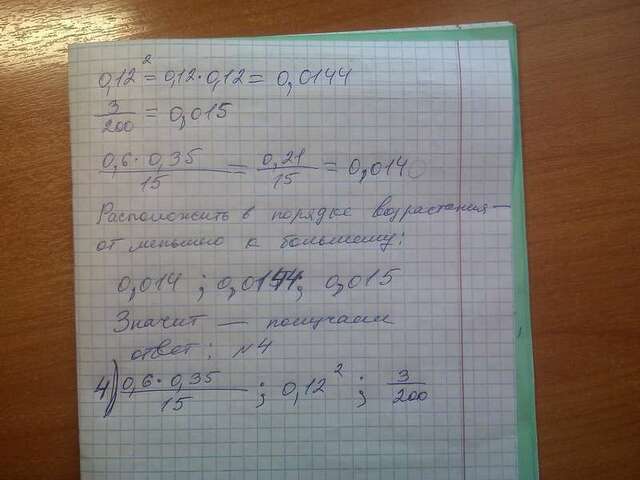 0,12² = 0,12·0,12 = 0,0144
3/200 = 0,015
0,6·0,35/15 = 0,21/15 = 0,014
Расположить в порядке возрастания —
от меньшего к большему:
0,014 ; 0,0144; 0,015
Значит — получаем
ответ: №4
4) 0,6·0,35/15 ; 0,12² ; 3/200